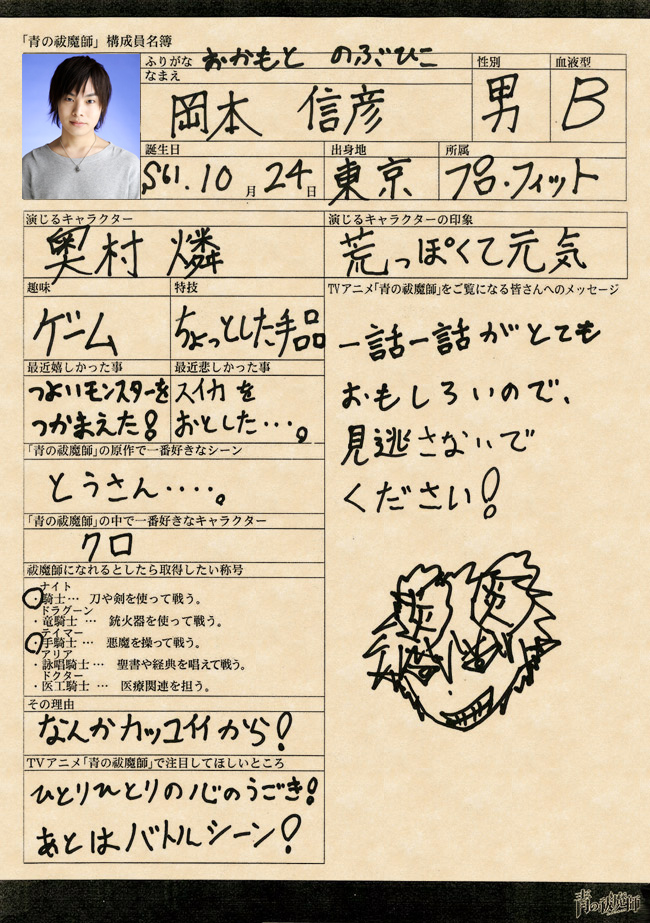 「青の祓魔師」構成員名簿
ふりがな おかもと のぶひこ
なまえ
岡本 信彦
性別
男
血液型
B
誕生日
S61.10月24日
出身地
東京
所属
プロ・フィット
演じるキャラクター
奥村 燐
演じるキャラクターの印象
荒っぽくて元気
趣味
ゲーム
特技
ちょっとした手品
最近嬉しかった事
つよいモンスターを
つかまえた!
最近悲しかった事
スイカを
おとした・・・。
「青の祓魔師」の原作で一番好きなシーン
とうさん・・・・。
「青の祓魔師」の中で一番好きなキャラクター
クロ
祓魔師になれるとしたら取得したい称号
ナイト
・騎士… 刀や剣を使って戦う。
ドラグーン
・竜騎士… 銃火器を使って戦う。
テイマー
・手騎士… 悪魔を操って戦う。
アリア
・詠唱騎士… 聖書や経典を唱えて戦う。
ドクター
・医工騎士… 医療関連を担う。
その理由
なんかカッコイイから!
TVアニメ「青の祓魔師」で注目してほしいところ
ひとりひとりの心のうごき!
あとはバトルシーン!
TVアニメ「青の祓魔師」をご覧になる皆さんへのメッセージ
一話一話がとても
おもしろいので、
見逃さないで
ください!
青の祓魔師